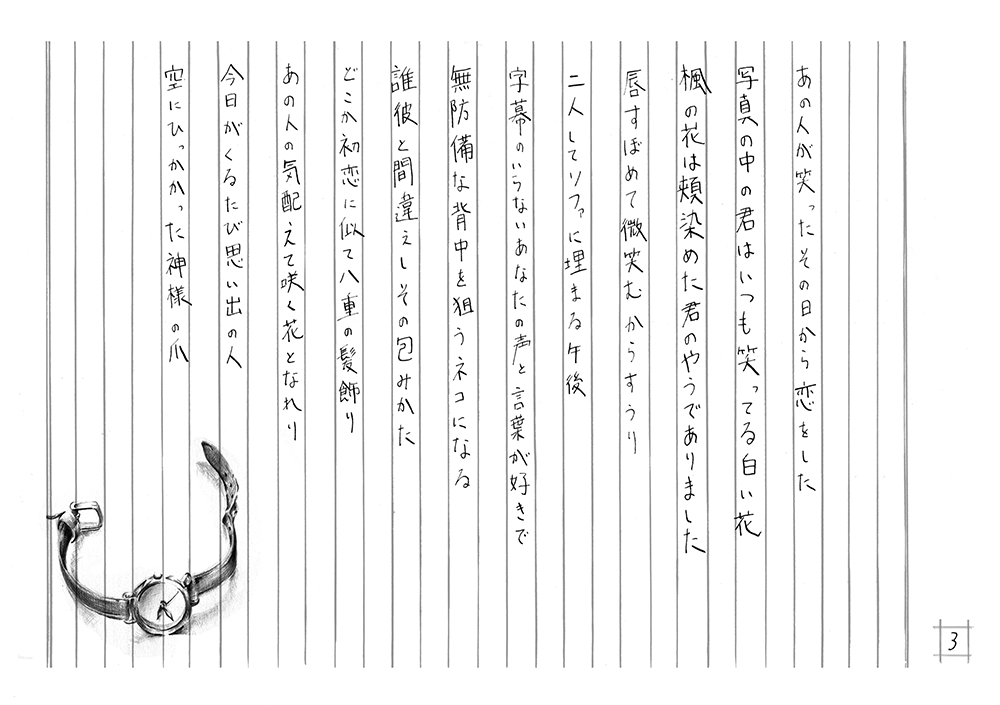 あの人が笑ったその日から恋をした
写真の中の君はいつも笑ってる白い花
楓の花は頬染めた君のやうでありました
唇すぼめて微笑むからすうり
二人してソファに埋まる午後
字幕のいらないあなたの声と言葉が好きで
無防備な背中を狙うネコになる
誰彼と間違えしその包みかた
どこか初恋に似て八重の髪飾り
あの人の気配えて咲く花となれり
今日がくるたび思い出の人
空にひっかかった神様の爪
3